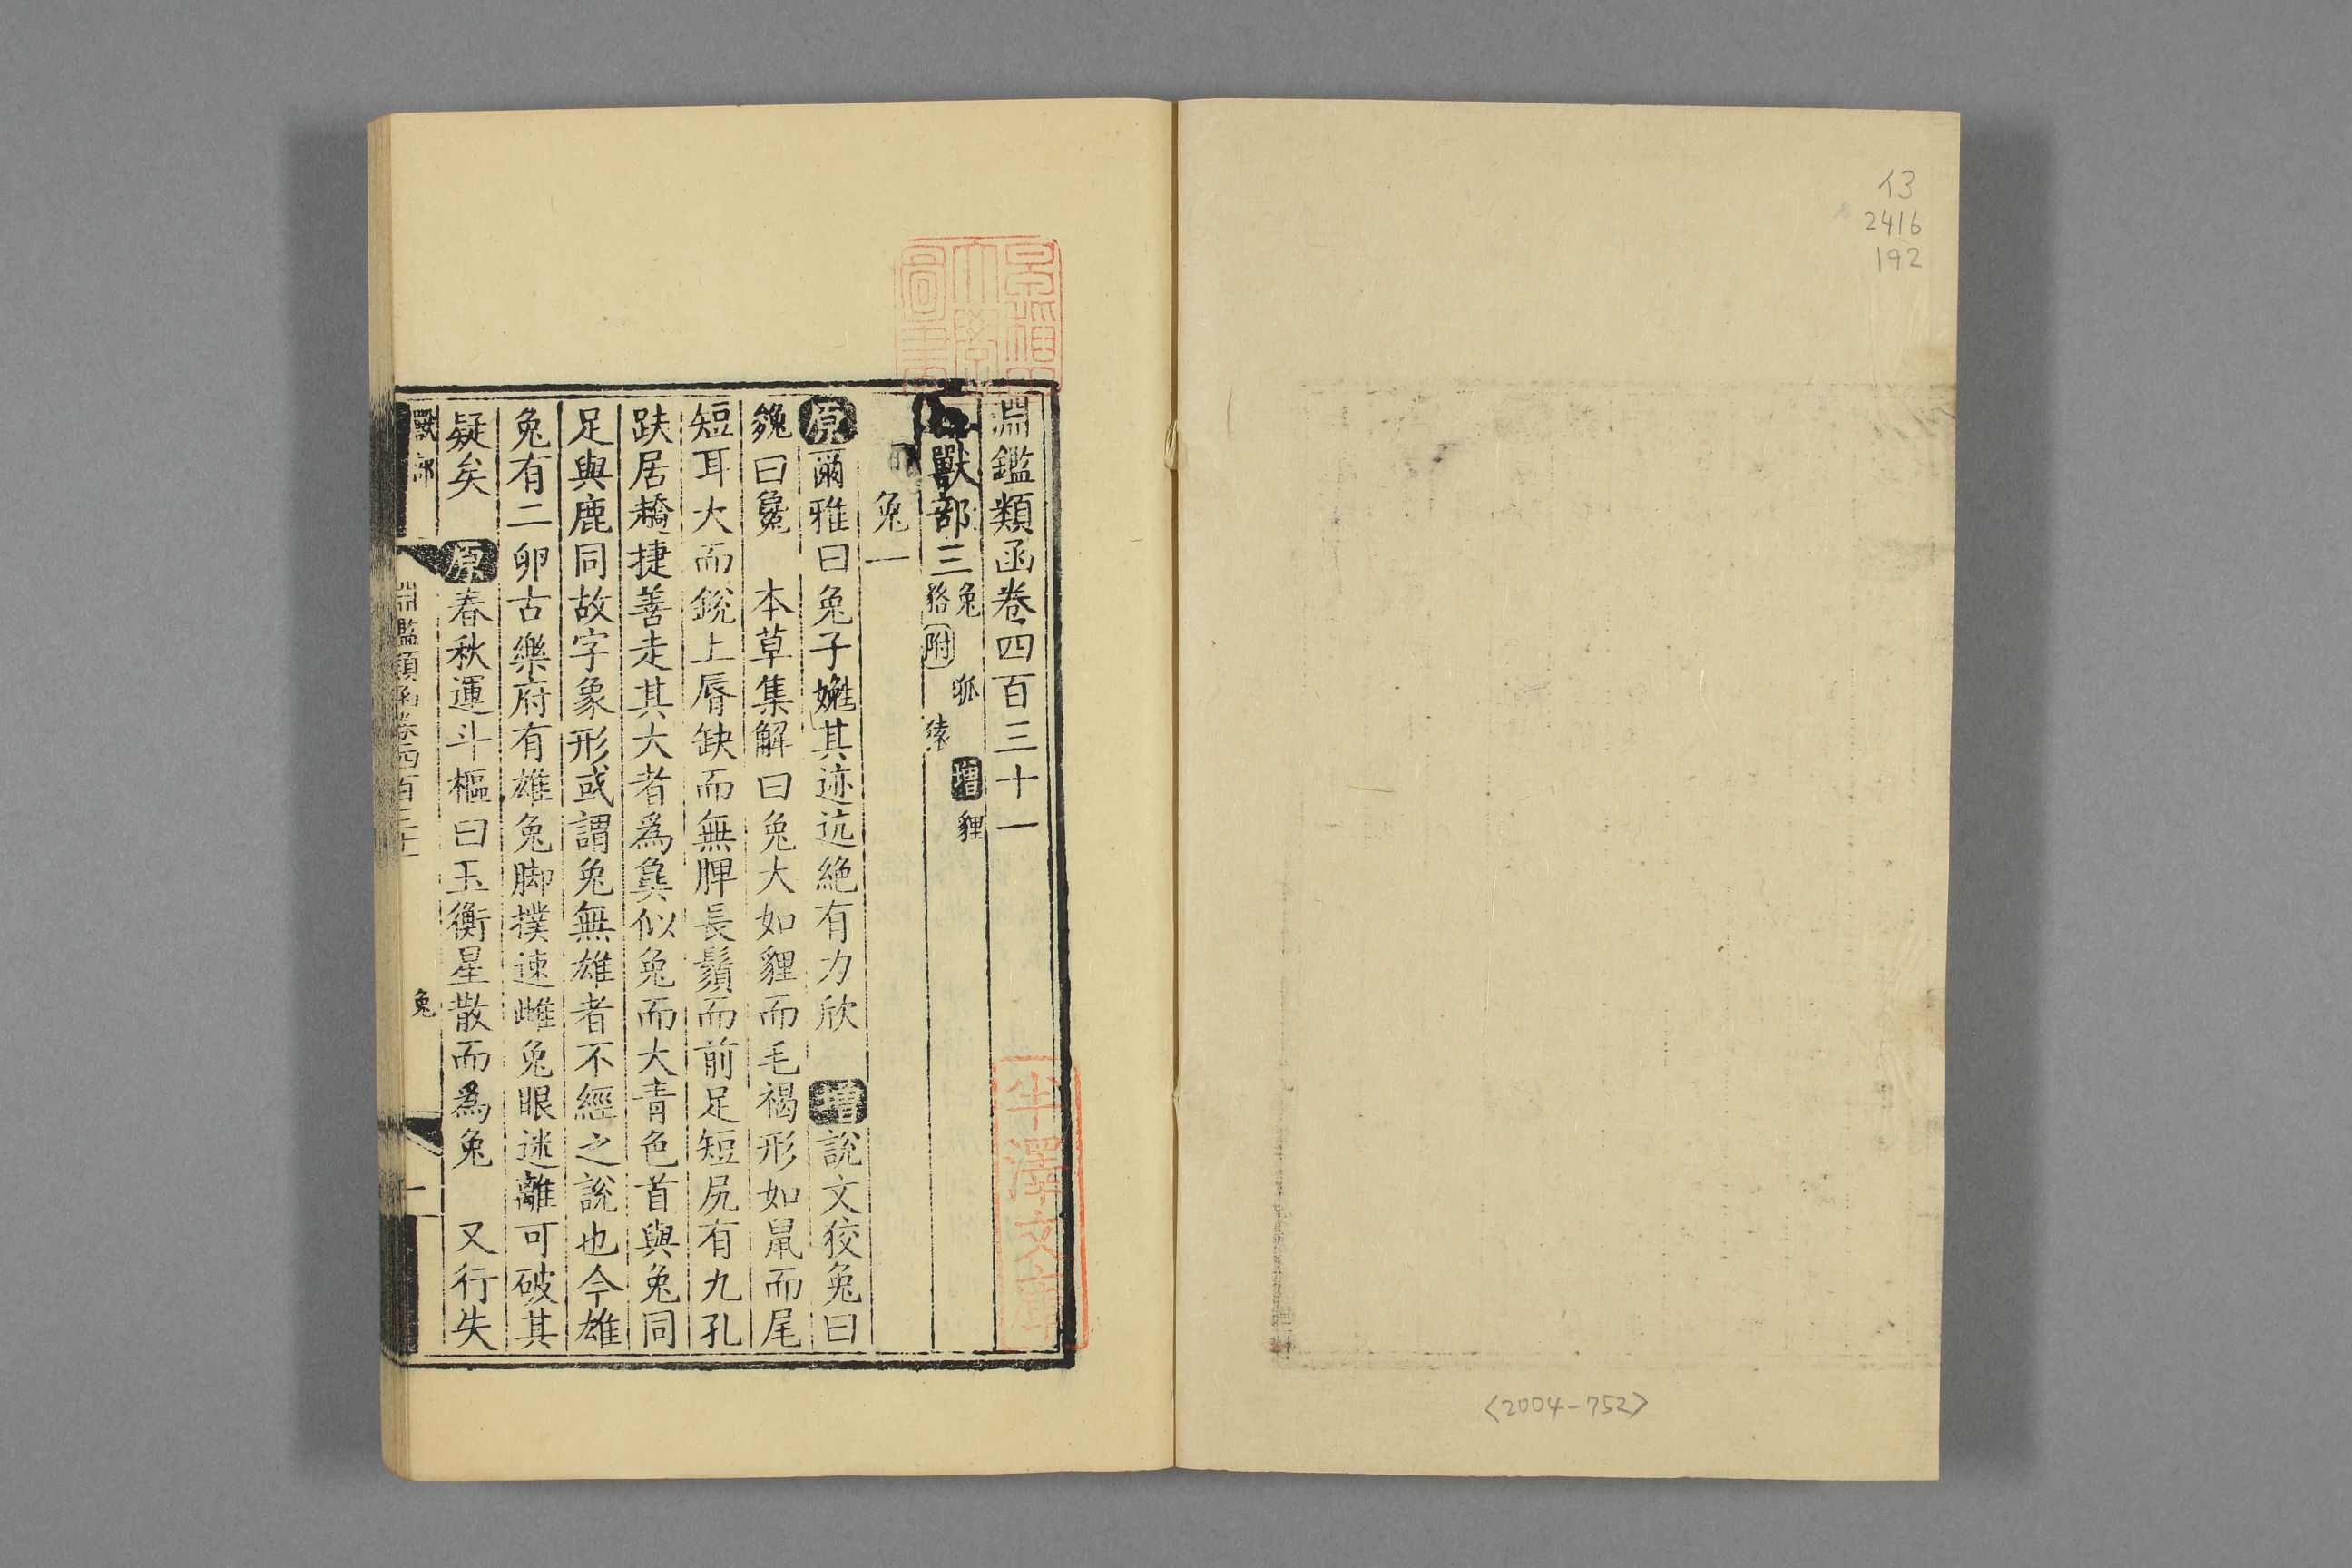 13
2416
192
<2004-752>
淵鑑類函卷四百三十一
獸部三 兔 狐 增 貍 貉 附 猿
兔一
原 爾雅曰兔子嬎其迹迒絕有力欣 增 說文狡兔曰
㕙曰㲋 本草集解曰兔大如貍而毛褐形如鼠而尾
短耳大而銳上脣缺而無脾長鬚而前足短尻有九孔
趺居趫捷善走其大者爲㚟似兔而大青色首與兔同
足與鹿同故字象形或謂兔無雄者不經之說也今雄
兔有二卵古樂府有雄兔脚撲速雌兔眼迷離可破其
疑矣 原 春秋運斗樞曰玉衡星散而爲兔 又行失
獸部 淵鑑類函卷四百三十一 兔 一